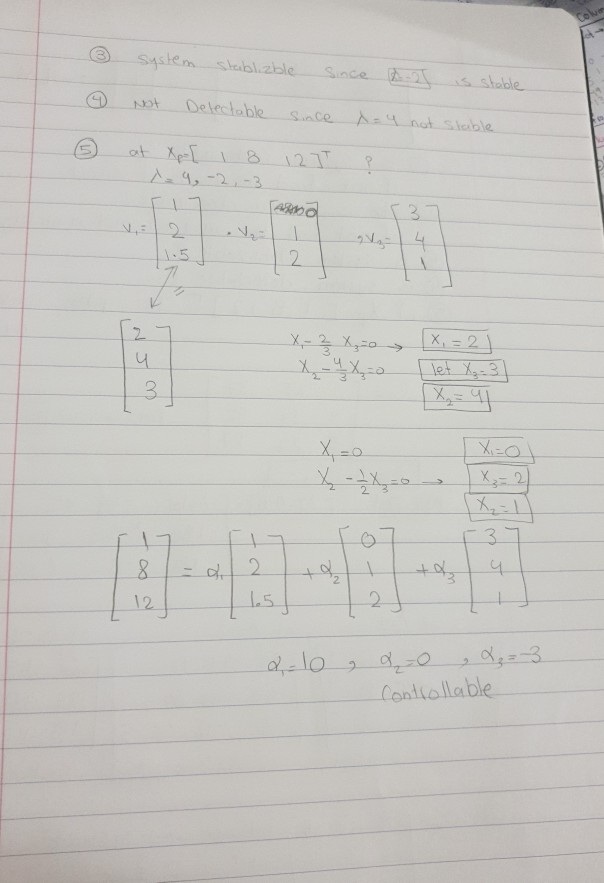 ③ System stablizble since λ=-2 is stable
④ Not Detectable since λ=4 not stable
⑤ at Xₚ=[ 1 8 12]ᵀ ?
λ=4, -2, -3
V₁=[1 2 1.5] , V₂=[0 1 2] , V₃=[3 4 1]
[2 4 3]
X₁ - 2/3 X₃=0 → X₁=2
X₂ - 4/3 X₃=0 let X₃=3
X₂=4
X₁=0 X₁=0
X₂ - 1/2 X₃=0 → X₃=2
X₂=1
[1 8 12] = α₁ [1 2 1.5] + α₂ [0 1 2] + α₃ [3 4 1]
α₁=10 , α₂=0 , α₃=-3
Controllable